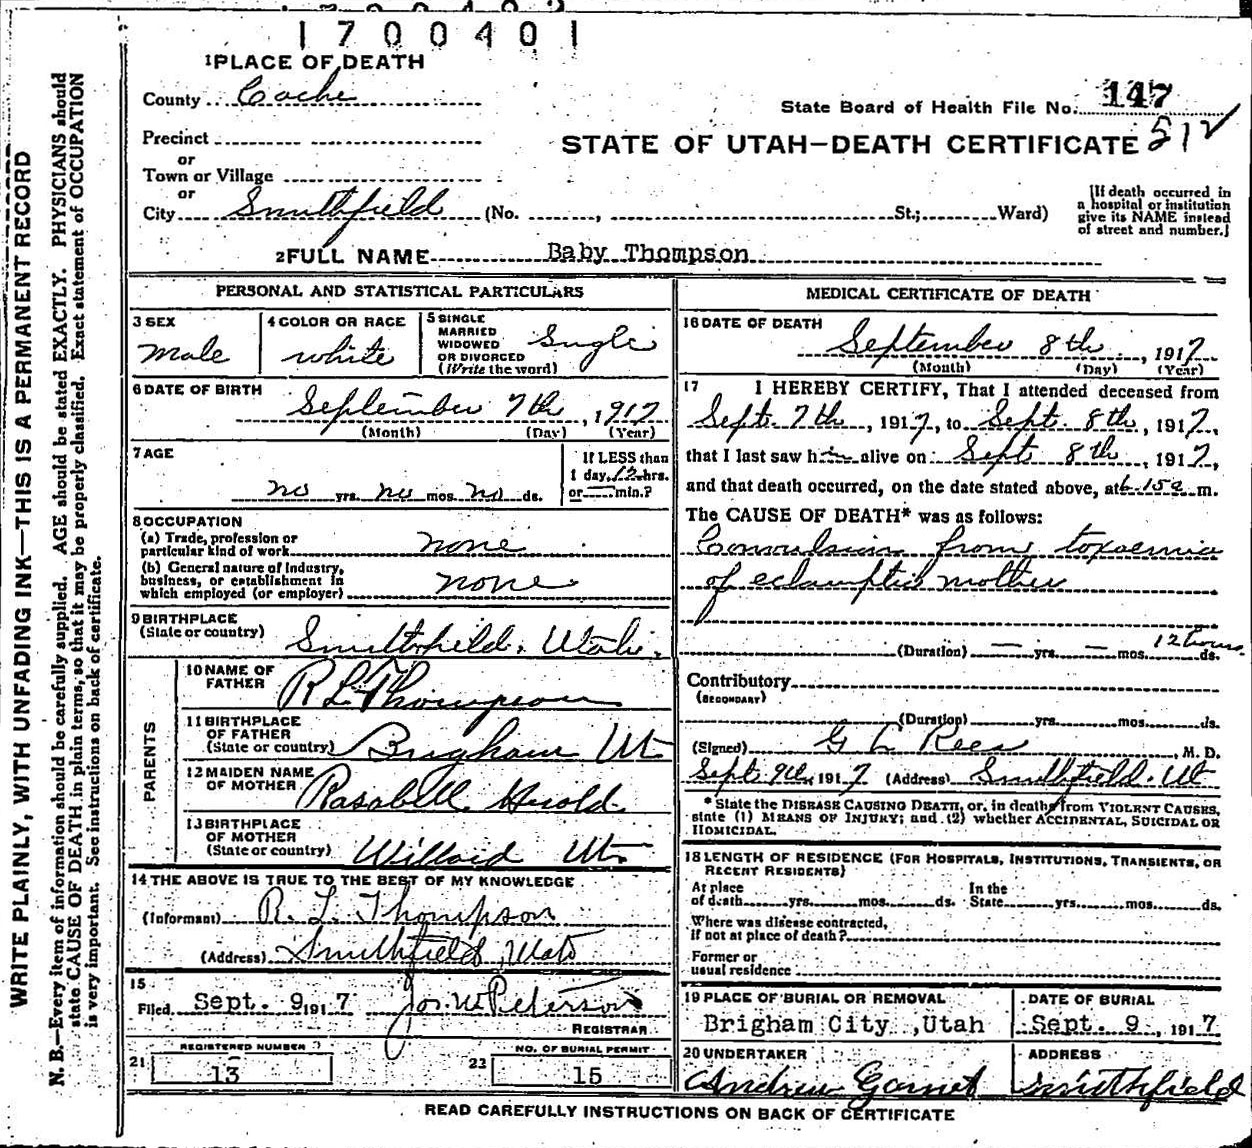 1700401
1 PLACE OF DEATH
County Cache
State Board of Health File No. 147
Precinct
or
STATE OF UTAH—DEATH CERTIFICATE 512
Town or Village
or
City Smithfield (No. , St.; Ward)
[If death occurred in a hospital or institution give its NAME instead of street and number.]
2 FULL NAME Baby Thompson
PERSONAL AND STATISTICAL PARTICULARS
3 SEX
Male
4 COLOR OR RACE
white
5 SINGLE
MARRIED
WIDOWED
OR DIVORCED
(Write the word)
Single
6 DATE OF BIRTH
September 7th, 1917
(Month) (Day) (Year)
7 AGE
no yrs. no mos. no ds.
If LESS than
1 day, 12 hrs.
or — min.?
8 OCCUPATION
(a) Trade, profession or
particular kind of work none
(b) General nature of industry,
business, or establishment in
which employed (or employer) none
9 BIRTHPLACE
(State or country) Smithfield, Utah.
PARENTS
10 NAME OF
FATHER R L Thompson
11 BIRTHPLACE
OF FATHER
(State or country) Brigham Ut
12 MAIDEN NAME
OF MOTHER Rasabell Herold
13 BIRTHPLACE
OF MOTHER
(State or country) Willard Ut.
14 THE ABOVE IS TRUE TO THE BEST OF MY KNOWLEDGE
(Informant) R. L. Thompson
(Address) Smithfield, Utah
15
Filed Sept. 9, 1917 Jos. W Peterson
REGISTRAR
REGISTERED NUMBER
21 13
NO. OF BURIAL PERMIT
22 15
MEDICAL CERTIFICATE OF DEATH
16 DATE OF DEATH
September 8th, 1917
(Month) (Day) (Year)
17 I HEREBY CERTIFY, That I attended deceased from
Sept. 7th, 1917, to Sept. 8th, 1917,
that I last saw him alive on Sept 8th, 1917,
and that death occurred, on the date stated above, at 6.15a m.
The CAUSE OF DEATH* was as follows:
Convulsion from toxaemia
of eclamptic mother
(Duration) — yrs. — mos. 12 hours ds.
Contributory
(SECONDARY)
(Duration) yrs. mos. ds.
(Signed) G L Rees, M. D.
Sept 9th, 1917 (Address) Smithfield. Ut
* State the DISEASE CAUSING DEATH, or, in deaths from VIOLENT CAUSES,
state (1) MEANS OF INJURY; and (2) whether ACCIDENTAL, SUICIDAL OR
HOMICIDAL.
18 LENGTH OF RESIDENCE (FOR HOSPITALS, INSTITUTIONS, TRANSIENTS, OR
RECENT RESIDENTS)
At place
of death yrs. mos. ds.
In the
State yrs. mos. ds.
Where was disease contracted,
if not at place of death?
Former or
usual residence
19 PLACE OF BURIAL OR REMOVAL
Brigham City ,Utah
DATE OF BURIAL
Sept. 9, 1917
20 UNDERTAKER
Andrew Garnet
ADDRESS
Smithfield
READ CAREFULLY INSTRUCTIONS ON BACK OF CERTIFICATE
WRITE PLAINLY, WITH UNFADING INK—THIS IS A PERMANENT RECORD
N. B.—Every item of information should be carefully supplied. AGE should be stated EXACTLY. PHYSICIANS should
state CAUSE OF DEATH in plain terms, so that it may be properly classified. Exact statement of OCCUPATION
is very important. See instructions on back of certificate.